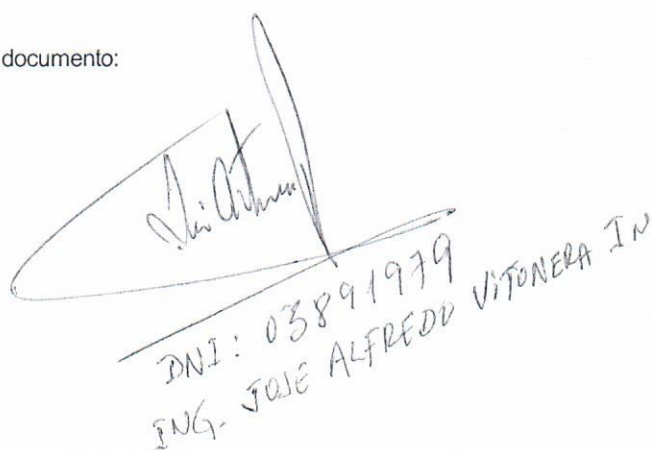 documento:
DNI: 03891979
ING. JOSE ALFREDO VITONERA IN